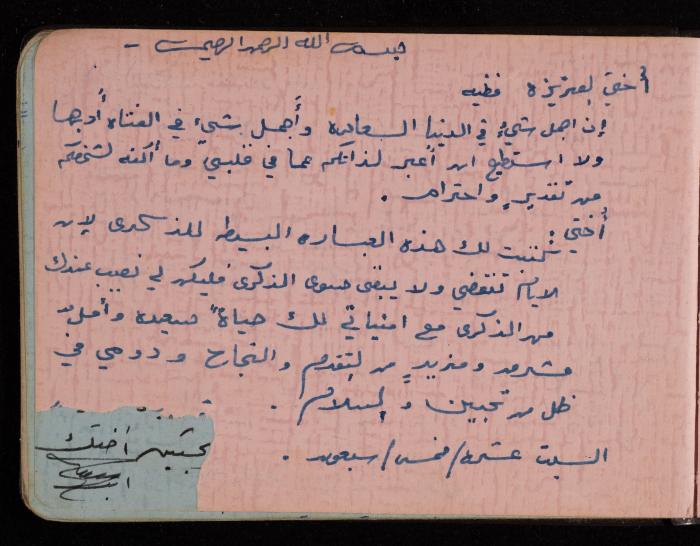 بسم الله الرحمن الرحيم -
أختي العزيزة فظيه
إن اجمل شيءٍ في الدنيا السعاده وأجمل شيء في الفتاه أدبها
ولا استطيع ان أعبر لذاتكم عما في قلبي وما أكنه لشخصكم
من تقديرٍ واحترام .
أختي:
كتبت لك هذه العباره البسيطه للذكرى لإن
الايام تنقضي ولا يبقى سوى الذكرى فليكن لي نصيب عندك
من الذكرى مع امنياتي لك حياةً سعيده وأمل
مشرق ومزيدٍ من التقدم والنجاح ودومي في
ظل من تحبين والسلام .
السبت عشره/خمس/سبعون .
أختك